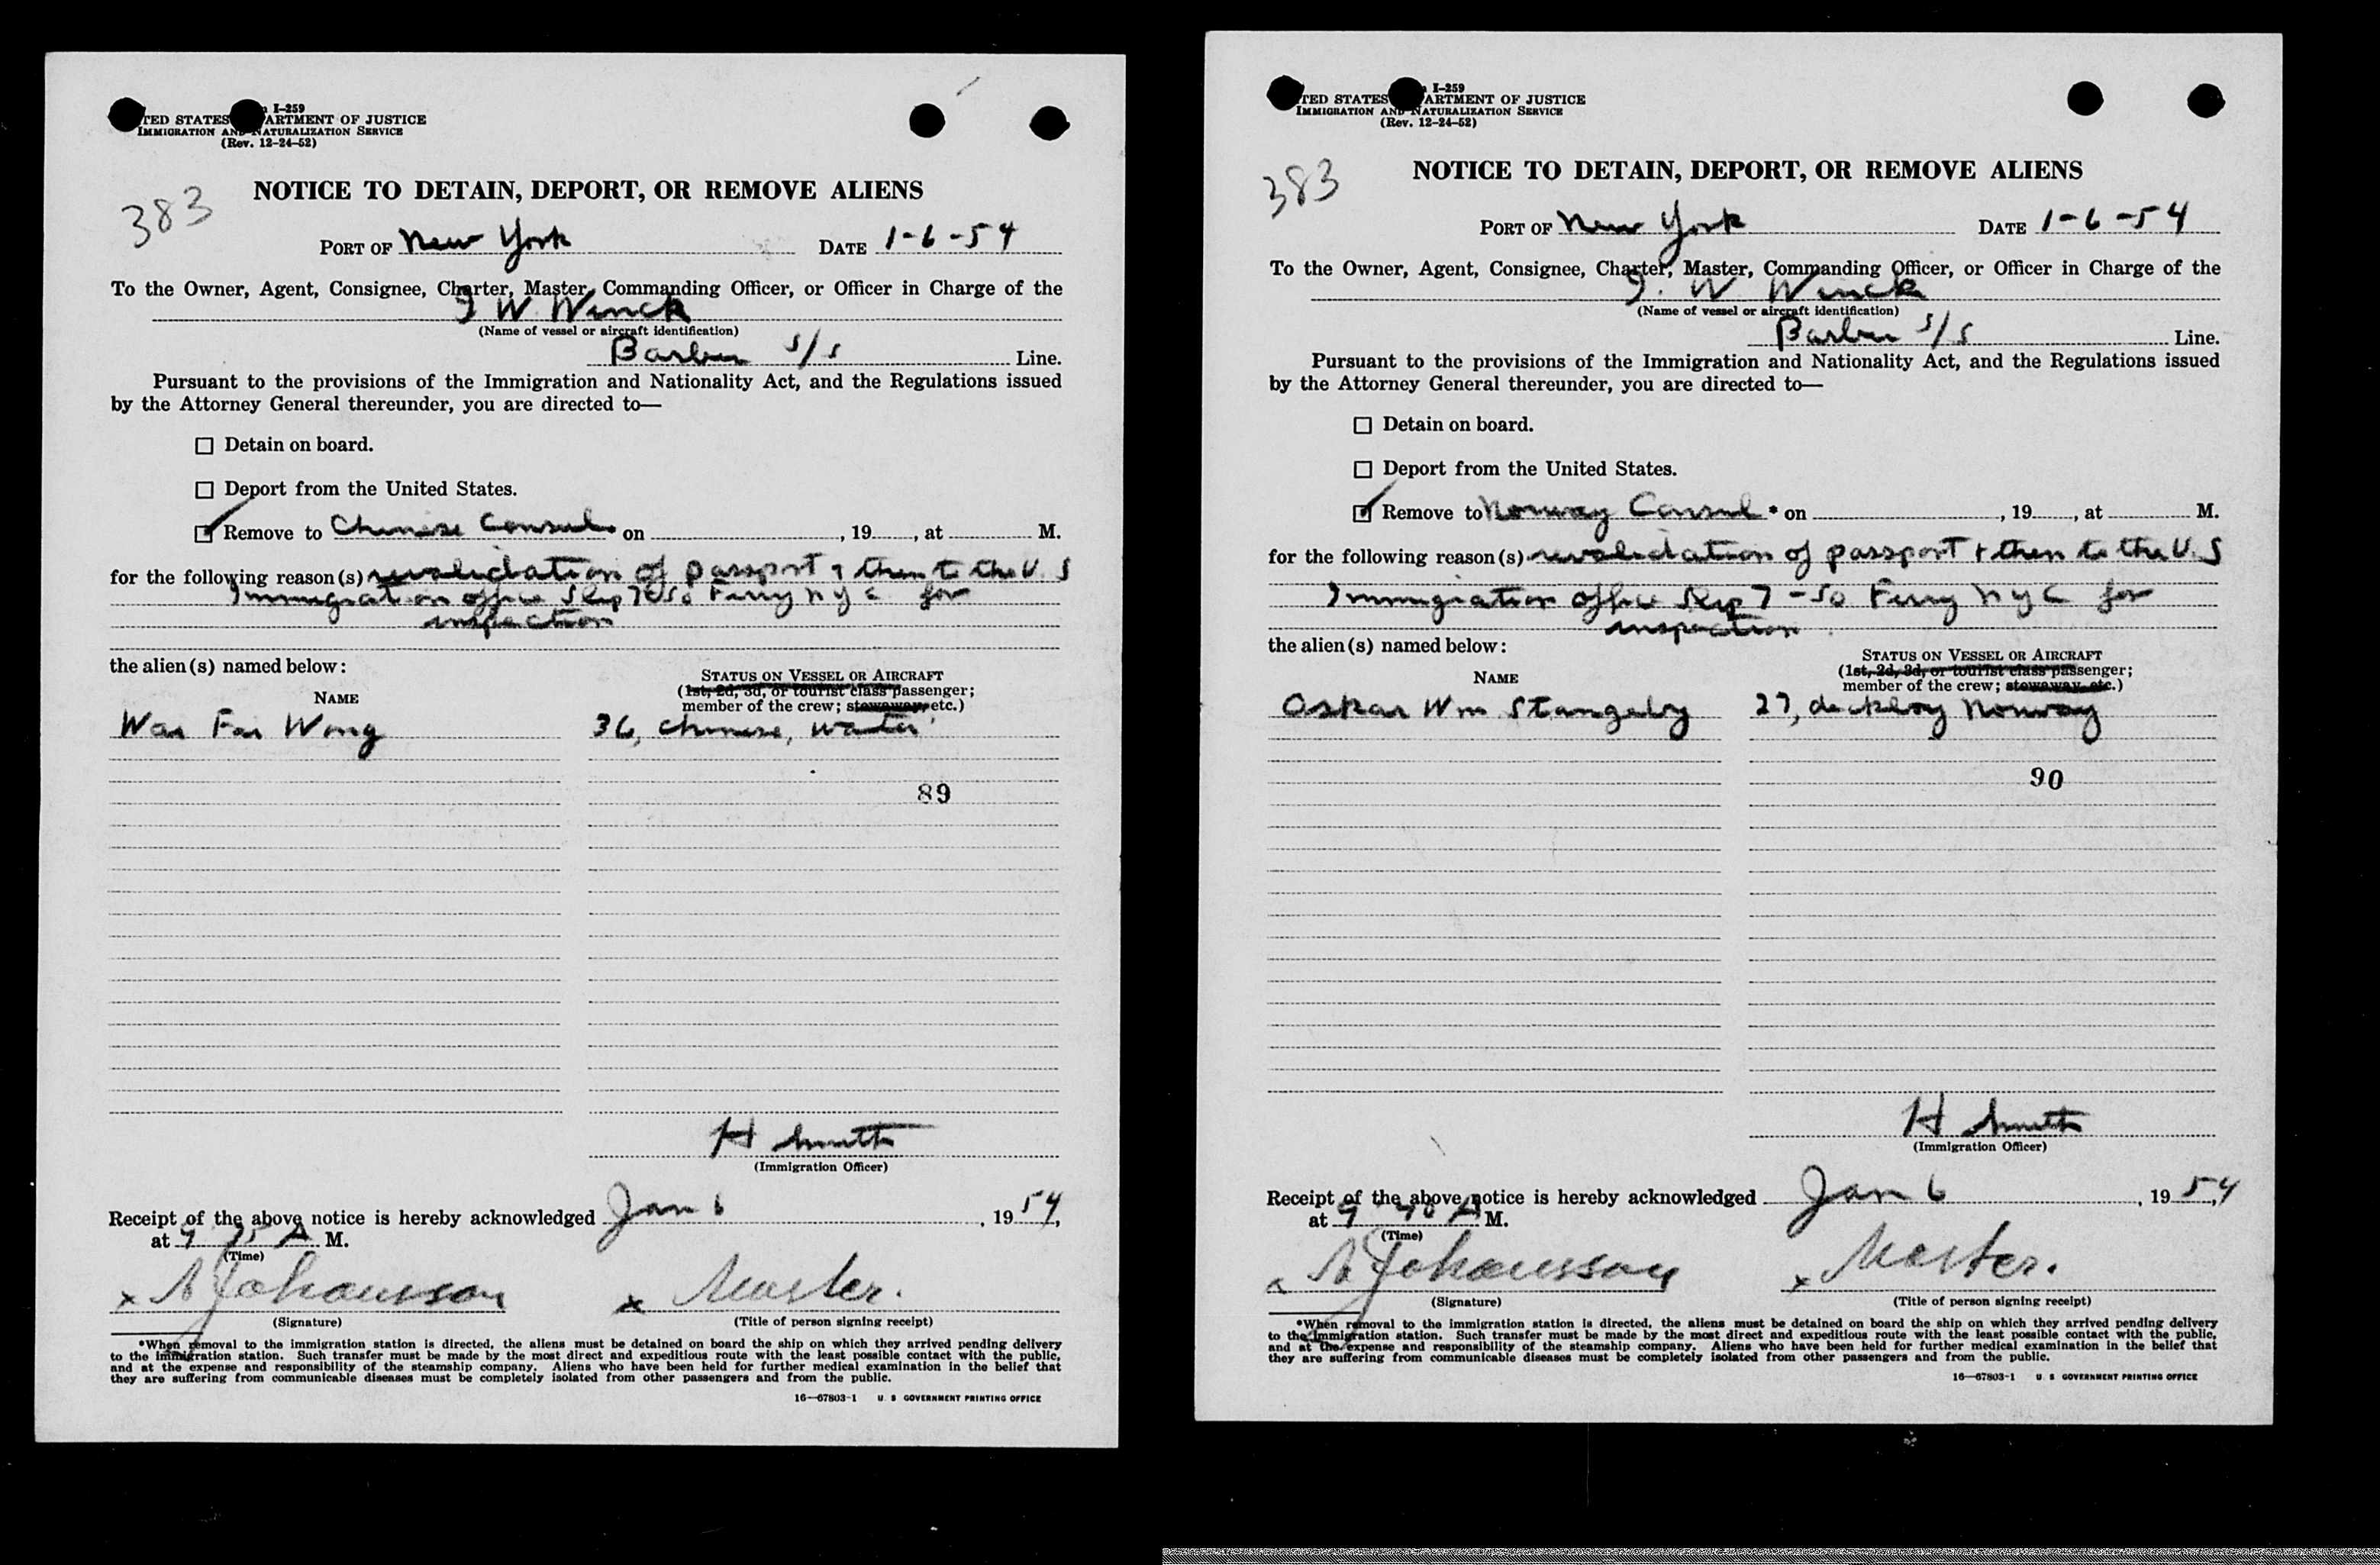 I-259
TED STATES ARTMENT OF JUSTICE
IMMIGRATION AND NATURALIZATION SERVICE
(Rev. 12-24-52)
383
NOTICE TO DETAIN, DEPORT, OR REMOVE ALIENS
PORT OF New York DATE 1-6-54
To the Owner, Agent, Consignee, Charter, Master, Commanding Officer, or Officer in Charge of the
W. Winck
(Name of vessel or aircraft identification)
Barber S/S Line.
Pursuant to the provisions of the Immigration and Nationality Act, and the Regulations issued
by the Attorney General thereunder, you are directed to—
☐ Detain on board.
☐ Deport from the United States.
☑ Remove to Chinese Consul on , 19 , at M.
for the following reason(s) revalidation of passport & then to the U. S
Immigration office Slip 7 So Ferry N Y C for
inspection
the alien(s) named below:
NAME
STATUS ON VESSEL OR AIRCRAFT
(1st, 2d, 3d, or tourist class passenger;
member of the crew; stowaway, etc.)
Wong 36, Chinese, waiter
89
H Smith
(Immigration Officer)
Receipt of the above notice is hereby acknowledged Jan 6, 19 54,
at 9 35 A M.
(Time)
x A Johansson x Master.
(Signature) (Title of person signing receipt)
*When removal to the immigration station is directed, the aliens must be detained on board the ship on which they arrived pending delivery
to the immigration station. Such transfer must be made by the most direct and expeditious route with the least possible contact with the public,
and at the expense and responsibility of the steamship company. Aliens who have been held for further medical examination in the belief that
they are suffering from communicable diseases must be completely isolated from other passengers and from the public.
16—67803-1 U. S. GOVERNMENT PRINTING OFFICE
I-259
TED STATES ARTMENT OF JUSTICE
IMMIGRATION AND NATURALIZATION SERVICE
(Rev. 12-24-52)
383
NOTICE TO DETAIN, DEPORT, OR REMOVE ALIENS
PORT OF New York DATE 1-6-54
To the Owner, Agent, Consignee, Charter, Master, Commanding Officer, or Officer in Charge of the
W. Winck
(Name of vessel or aircraft identification)
Barber S/S Line.
Pursuant to the provisions of the Immigration and Nationality Act, and the Regulations issued
by the Attorney General thereunder, you are directed to—
☐ Detain on board.
☐ Deport from the United States.
☑ Remove to Norway Consul * on , 19 , at M.
for the following reason(s) revalidation of passport & then to the U. S
Immigration office Slip 7 - So Ferry N Y C for
inspection
the alien(s) named below:
NAME
STATUS ON VESSEL OR AIRCRAFT
(1st, 2d, 3d, or tourist class passenger;
member of the crew; stowaway, etc.)
Oskar Wm Stangeby 27, deckboy Norway
90
H Smith
(Immigration Officer)
Receipt of the above notice is hereby acknowledged Jan 6, 19 54
at 9 40 A M.
(Time)
x A Johansson x Master.
(Signature) (Title of person signing receipt)
*When removal to the immigration station is directed, the aliens must be detained on board the ship on which they arrived pending delivery
to the immigration station. Such transfer must be made by the most direct and expeditious route with the least possible contact with the public,
and at the expense and responsibility of the steamship company. Aliens who have been held for further medical examination in the belief that
they are suffering from communicable diseases must be completely isolated from other passengers and from the public.
16—67803-1 U. S. GOVERNMENT PRINTING OFFICE